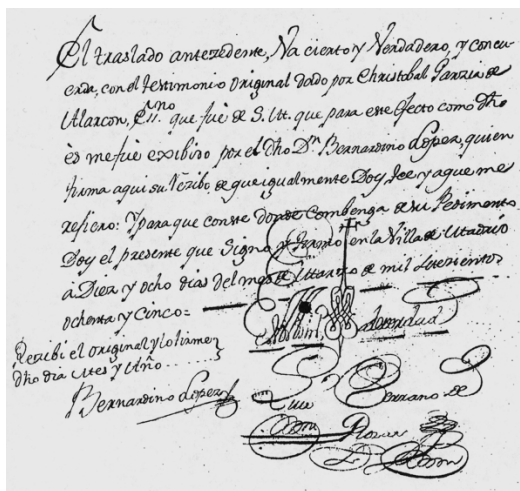 El traslado antezedente, Va cierto y Verdadero, y concu
erda, con el Testimonio Original dado por Christobal Garzia de
Alarcon, Essno que fue de S. M. que para este efecto como dho
es me fue exibido por el dho Dn Bernardino Lopez, quien
firma aqui su Rezibo de que igualmente Doy fee, y a que me
refiero: Y para que conste donde Combenga de su Pedimento
Doy el presente que Signo y firmo en la Villa de Madrid
a Diez y ocho dias del mes de Marzo de mil setezientos
ochenta y Cinco=
Rezibi el original y lo firme
dho dia Mes y Año
Bernardino Lopez
de verdad
Serrano de